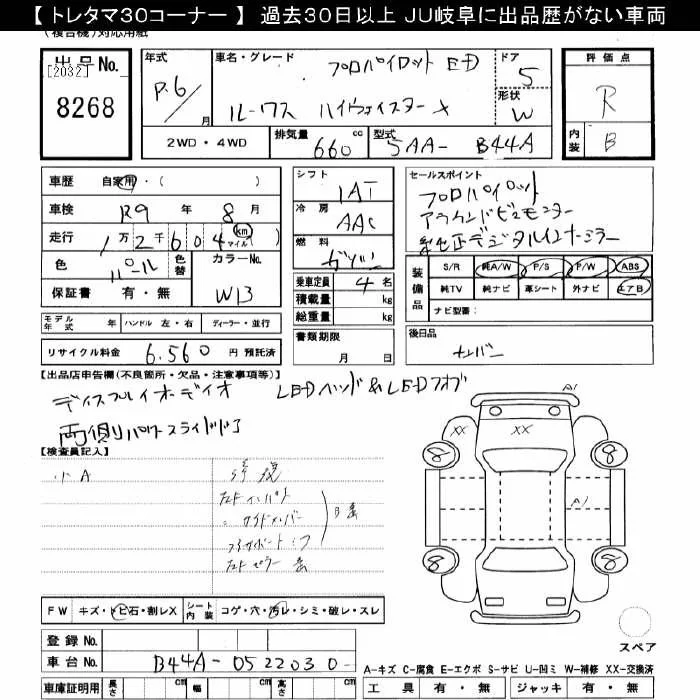 【 トレタマ30コーナー 】 過去30日以上 JU岐阜に出品歴がない車両
(複合機)対応用紙
出品No.
[2032]
8268
年式
P.6/月
車名・グレード
プロパイロット ED
ルークス ハイウェイスター X
ドア
5
形状
W
2WD・4WD
排気量
660 cc
型式
5AA- B44A
評価点
R
内装
B
車歴 自家用・( )
車検 R9 年 8 月
走行 1万2千604 km マイル
色 パール 色替
カラーNo.
W13
保証書 有・無
シフト
1AT
冷房
AAC
燃料
ガソリン
乗車定員 4 名
積載量 kg
総重量 kg
書類期限
月 日
セールスポイント
プロパイロット
アラウンドビューモニター
純正デジタルインナーミラー
装備品
S/R 純A/W P/S P/W ABS
純TV 純ナビ 革シート 外ナビ エアB
ナビ型番:
後日品
ナンバー
モデル年式 年 ハンドル 左・右 ディーラー・並行
リサイクル料金 6.560 円 預託済
【出品店申告欄(不良箇所・欠品・注意事項等)】
ディスプレイオーディオ LEDヘッド&LEDフォグ
両側パワースライドドア
【検査員記入】
小A
修復
FW キズ・トビ石・割レX シート内装 コゲ・穴・汚レ・シミ・破レ・スレ
A1
XX XX
8 8
A1
8 8
スペア
登録No.
車台No. B44A-0522030-
車庫証明用 長さ cm 幅 cm 高さ cm
A-キズ C-腐食 E-エクボ S-サビ U-凹ミ W-補修 XX-交換済
工具 有・無 ジャッキ 有・無